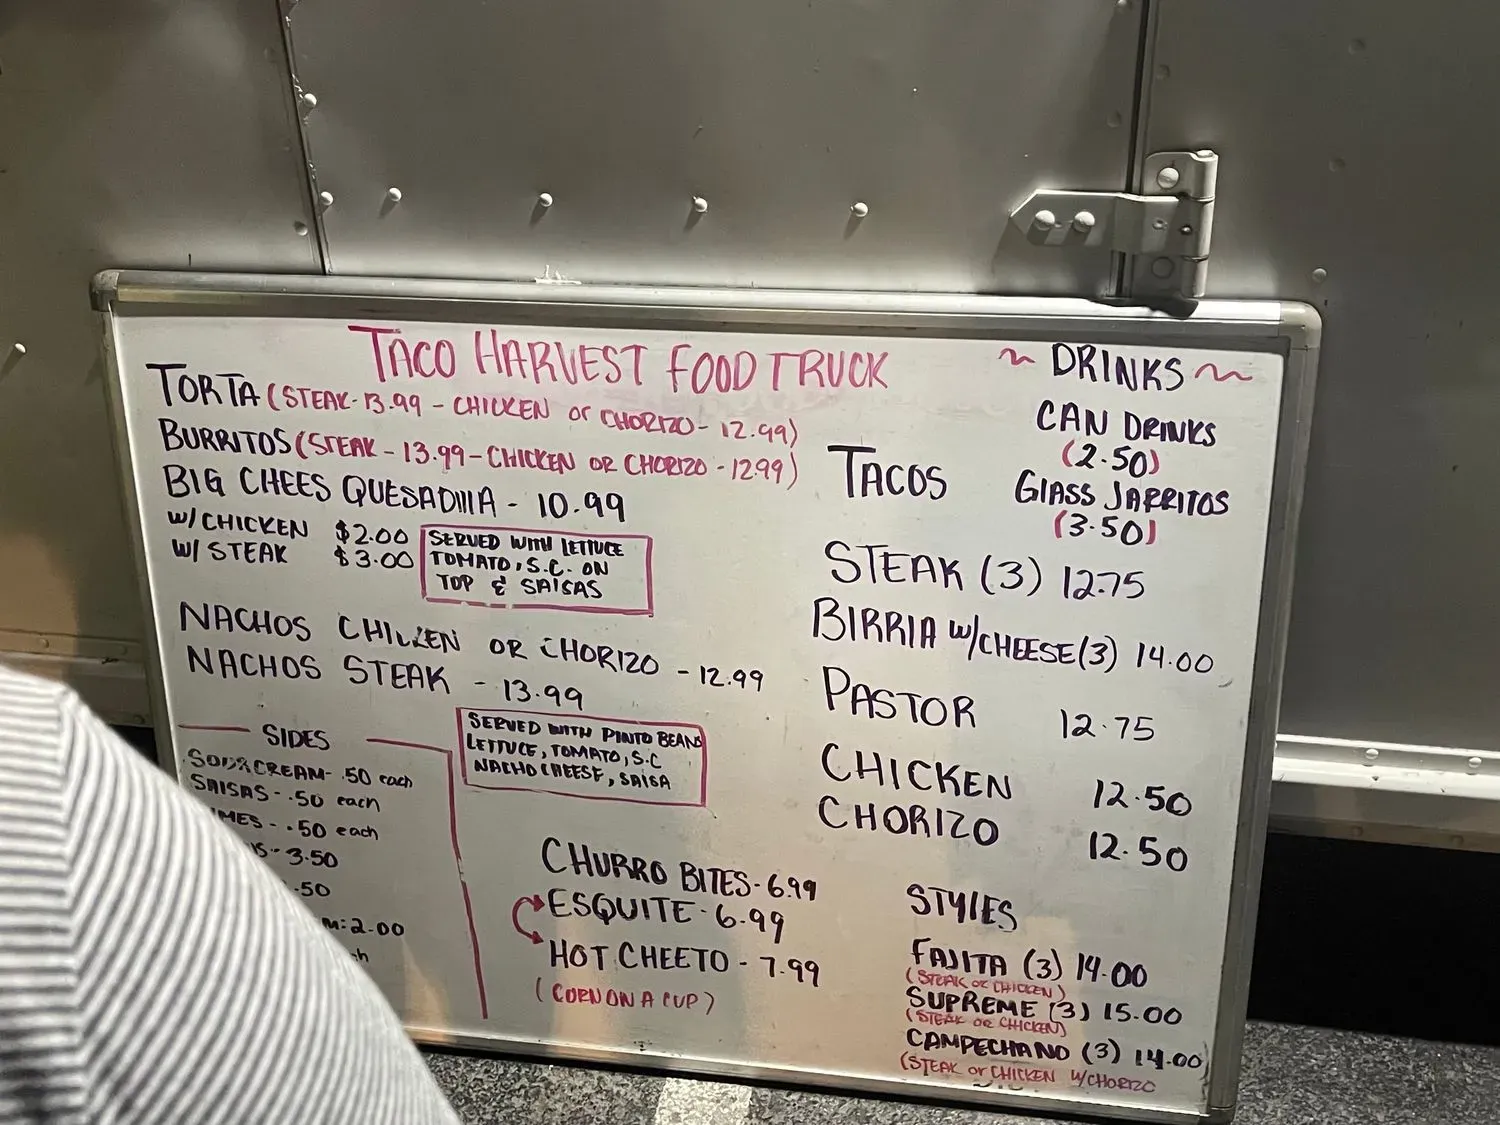 TACO HARVEST FOOD TRUCK
TORTA (STEAK-13.99 - CHICKEN or CHORIZO- 12.99)
BURRITOS (STEAK - 13.99 - CHICKEN OR CHORIZO - 12.99)
BIG CHEES QUESADIllA - 10.99
W/ CHICKEN $2.00
W/ STEAK $3.00
SERVED WITH LETTUCE
TOMATO, S.C. ON
TOP & SAlSAS
NACHOS CHICKEN OR CHORIZO - 12.99
NACHOS STEAK - 13.99
SERVED WITH PINTO BEANS
LETTUCE, TOMATO, S.C
NACHO CHEESE, SAlSA
SIDES
SOUR CREAM- .50 each
SAlSAS - .50 each
MES - .50 each
- 3.50
.50
M: 2.00
CHURRO BITES - 6.99
ESQUITE - 6.99
HOT CHEETO - 7.99
(CORN ON A CUP)
~ DRINKS ~
CAN DRINKS
(2.50)
GlASS JARRITOS
(3.50)
TACOS
STEAK (3) 12.75
BIRRIA W/CHEESE (3) 14.00
PASTOR 12.75
CHICKEN 12.50
CHORIZO 12.50
STYlES
FAJITA (3) 14.00
(STEAK or CHICKEN)
SUPREME (3) 15.00
(STEAK OR CHICKEN)
CAMPECHANO (3) 14.00
(STEAK or CHICKEN W/CHORIZO